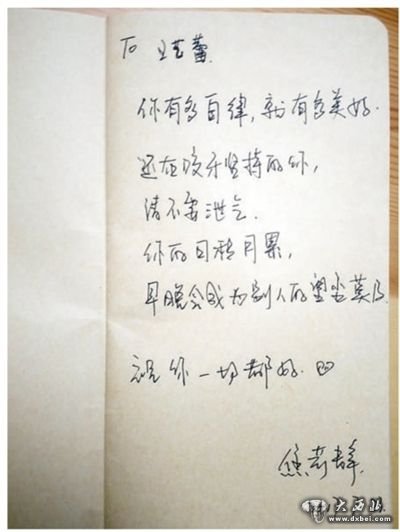 To 王艺蕾
你有多自律,就有多美好.
还在咬牙坚持的你,
请不要泄气.
你的日积月累,
早晚会成为别人的望尘莫及
祝你一切都好.
焦
大西北
www.dxbei.com